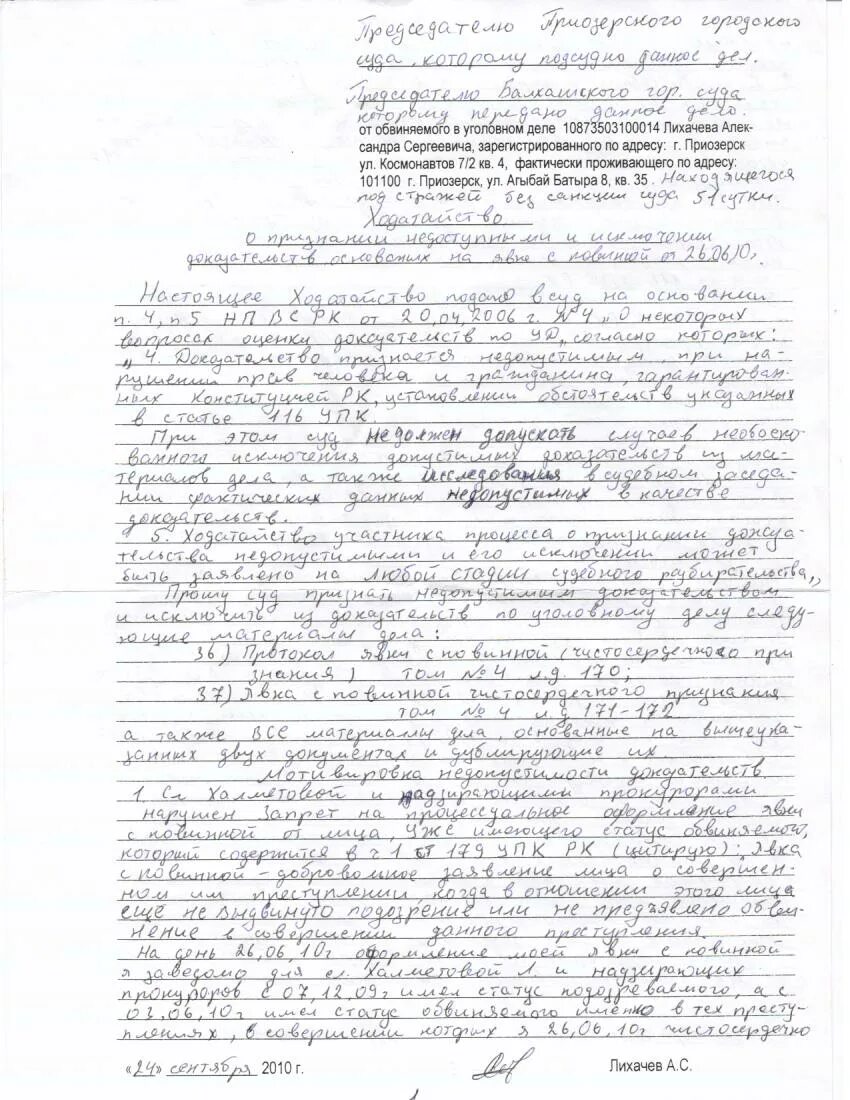 Председателю Приозерского городского
суда, которому подсудно данное дел.
Председателю Балхашского гор. суда
которому передано данное дело.
от обвиняемого в уголовном деле 10873503100014 Лихачева Алек-
сандра Сергеевича, зарегистрированного по адресу: г. Приозерск
ул. Космонавтов 7/2 кв. 4, фактически проживающего по адресу:
101100 г. Приозерск, ул. Агыбай Батыра 8, кв. 35. Находящегося
под стражей без санкции суда 51 сутки.
Ходатайство
о признании недоступными и исключении
доказательств основаных на явке с повинной от 26.06.10.
Настоящее Ходатайство подаю в суд на основании
п. 4, п 5 НП ВС РК от 20.04.2006 г. №4 „О некоторых
вопросах оценки доказательств по УД„ согласно которых:
„ 4. Доказательство признается недопустимым, при на-
рушении прав человека и гражданина, гарантирован-
ных Конституцией РК, установлении обстоятельств указанных
в статье 116 УПК.
При этом суд не должен допускать случаев необосно-
ванного исключения допустимых доказательств из ма-
териалов дела, а также исследования в судебном заседа-
нии фактических данных недопустимых в качестве
доказательств.
5. Ходатайство участника процесса о признании доказа-
тельства недопустимыми и его исключении может
быть заявлено на любой стадии судебного разбирательства„
Прошу суд признать недопустимым доказательством
и исключить из доказательств по уголовному делу следу-
ющие материалы дела:
36) Протокол явки с повинной (чистосердечного при
знания) том №4 л.д. 170;
37) Явка с повинной чистосердечного признания
том №4 л.д 171-172
а также ВСЕ материалы дела, основанные на вышеука-
занных двух документах и дублирующие их
Мотивировка недопустимости доказательств
1. Сл Халметовой и надзирающими прокурорами
нарушен Запрет на процессуальное оформление явки
с повинной от лица, уже имеющего статус обвиняемого,
который содержится в ч 1 ст 179 УПК РК (цитирую): Явка
с повинной - добровольное заявление лица о совершен-
ном им преступлении, когда в отношении этого лица
ещё не выдвинуто подозрение или не предъявлено обви-
нение в совершении данного преступления.
На день 26.06.10г оформления моей явки с повинной
я заведомо для сл. Халметовой Л. и надзирающих
прокуроров с 07.12.09г имел статус подозреваемого, а с
03.06.10г имел статус обвиняемого именно в тех престу-
плениях, в совершении которых я 26.06.10г чистосердечно
«24» сентября 2010 г. Лихачев А.С.
1